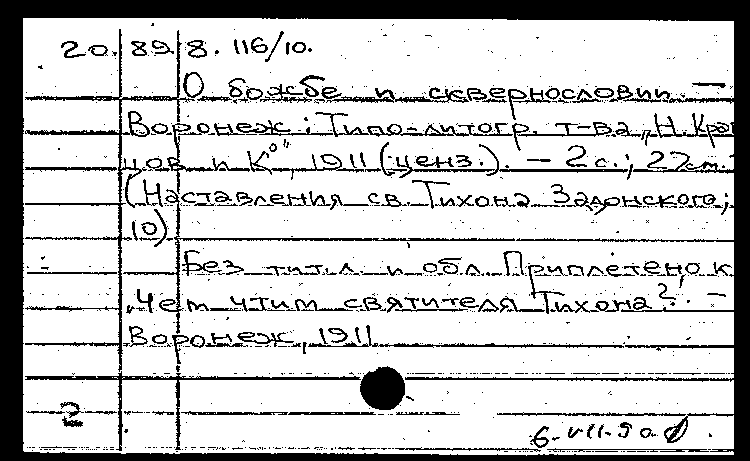 20.89.8.116/10.
О божбе и сквернословии. —
Воронеж: Типо-литогр. т-ва „Н. Крав
цов и К°", 1911 (ценз.). — 2 с.; 27 см. —
(Наставления св. Тихона Задонского;
10).
Без тит. л. и обл. Приплетено к
„Чем чтим святителя Тихона?". —
Воронеж, 1911
2
6-VII-90